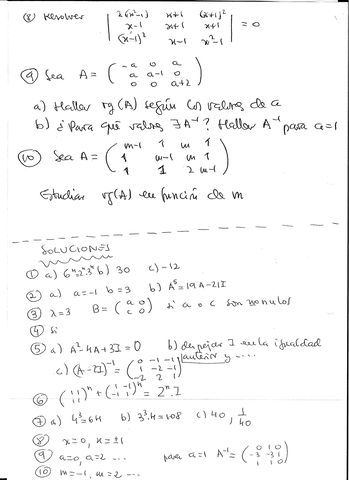 ⑧ Resolver | 2(x²-1) x+1 (x+1)² |
| x-1 x+1 x+1 | = 0
| (x-1)² x-1 x²-1 |
⑨ Sea A = ( -a 0 a
a a-1 0
0 0 a+2 )
a) Hallar rg(A) según los valores de a
b) ¿Para qué valores ∃ A⁻¹? Hallar A⁻¹ para a=1
⑩ Sea A = ( m-1 1 m 1
1 m-1 m 1
1 1 2 m-1 )
Estudiar rg(A) en función de m
SOLUCIONES
① a) b) 30 c) -12
② a) a=-1 b=3 b) A⁵=19A-21I
③ λ=3 B = ( a 0
c 0 ) si a o c son no nulos
④ Si
⑤ a) A²-4A+3I=0 b) despejar I en la igualdad
anterior y ....
c) (A-2I)⁻¹ = ( 0 -1 -1
1 -2 -1
-2 2 1 )
⑥ ( 1 1
1 1 )ⁿ + ( 1 -1
-1 1 )ⁿ = 2ⁿ·I
⑦ a) 4³=64 b) 3³·4=108 c) 40, 1/40
⑧ x=0, x=±1
⑨ a=0, a=2 ... para a=1 A⁻¹ = ( 0 1 0
-3 -3 1
1 1 0 )
⑩ m=-1, m=2 ...